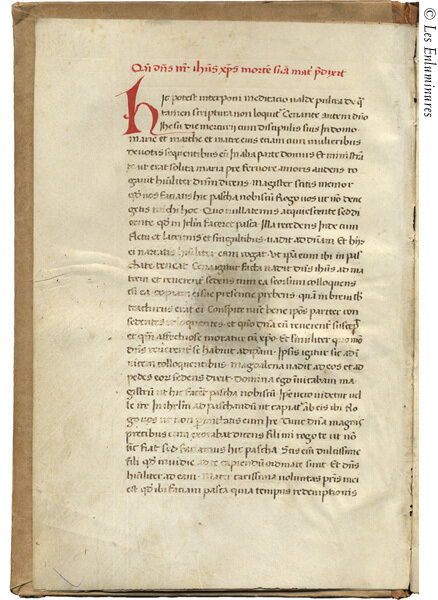 Qm̄ dn̄s nr̄ ihūs xp̄s morte sua mat' p̄dixit
Hic potest interponi meditatio valde pulcra de q̄
tamen scriptura non loquit' Cenante autem dn̄o
Ihesu die mercurij cum discipulis suis in domo
marie et marthe et matre eius etiam cum mulieribus
devotis sequentibus eum in alia parte domus Et ministrāt
te ut erat solita maria pre fervore amoris audens ro
gavit hūiliter dn̄m dicens Magister sitis memor
qd' nos faciatis hic pascha nobiscū Rogo vos ut nō dene
getis michi hoc Quo nullatenus acquiescente sed di
cente qd' in ierlm̄ faceret pasca Illa recedens inde cum
fletu et lacrimis et singultibus vadit ad dn̄am Et hijs
ei narratis hūiliter eam rogat ut ipsa eum ibi in pas
chate teneat Cena igitur facta vadit dn̄s ihūs ad ma
trem et reverent' sedens cum ea seorsum colloquens
cū ea copiam ei sue presencie prebens quam in brevi sb
tracturus erat ei Conspice nūc bene ipōs pariter con
sedentes colloquentes et quō dn̄a eum reverent' suscep'
et cum affectuose moratur cū xp̄o Et similiter quomō
dn̄s reverent' se habuit ad ipsam Ipsis igitur sic ad i
nvicem colloquentibus magdalena vadit ad eos et ad
pedes eor' sedens dixit Domina ego invitabam ma
gistrum ut hic faceret pascha nobiscum Ipse vero videtur vel
le ire in ihrlm̄ ad paschandū ut capiat' ab eis ibi Ro
go vos ut non permittatis eum ire Tunc dn̄a magnis
precibus eum exorabat dicens fili mi rogo te ut nō
sic fiat sed faciamus hic pascha Scis enī dulcissime
fili qd' insidie ad te capiendū ordinate sunt Et dn̄s
hūiliter ad eam Mater carissima voluntas pris mei
est qd' ibi faciam pasca quia tempus redemptionis
© Les Enluminures